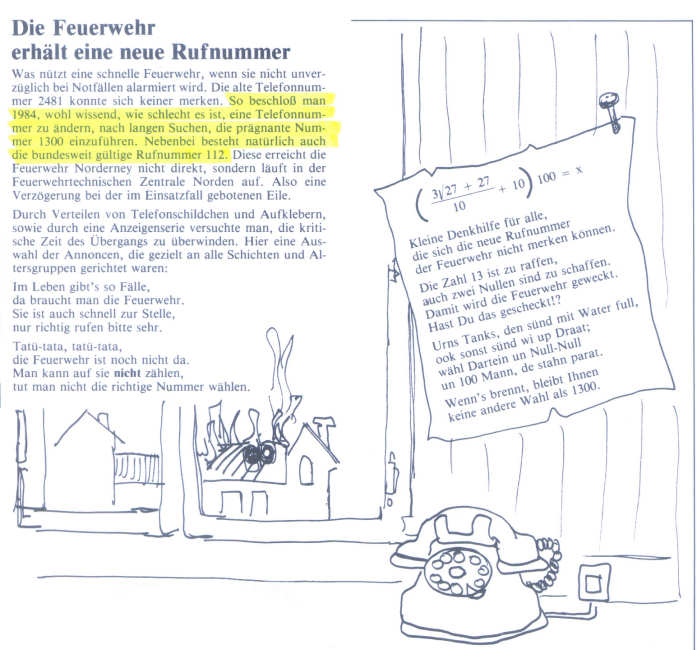 Die Feuerwehr
erhält eine neue Rufnummer
Was nützt eine schnelle Feuerwehr, wenn sie nicht unver-
züglich bei Notfällen alarmiert wird. Die alte Telefonnum-
mer 2481 konnte sich keiner merken. So beschloß man
1984, wohl wissend, wie schlecht es ist, eine Telefonnum-
mer zu ändern, nach langen Suchen, die prägnante Num-
mer 1300 einzuführen. Nebenbei besteht natürlich auch
die bundesweit gültige Rufnummer 112. Diese erreicht die
Feuerwehr Norderney nicht direkt, sondern läuft in der
Feuerwehrtechnischen Zentrale Norden auf. Also eine
Verzögerung bei der im Einsatzfall gebotenen Eile.
Durch Verteilen von Telefonschildchen und Aufklebern,
sowie durch eine Anzeigenserie versuchte man, die kriti-
sche Zeit des Übergangs zu überwinden. Hier eine Aus-
wahl der Annoncen, die gezielt an alle Schichten und Al-
tersgruppen gerichtet waren:
Im Leben gibt's so Fälle,
da braucht man die Feuerwehr.
Sie ist auch schnell zur Stelle,
nur richtig rufen bitte sehr.
Tatü-tata, tatü-tata,
die Feuerwehr ist noch nicht da.
Man kann auf sie nicht zählen,
tut man nicht die richtige Nummer wählen.
(3√27 + 27 / 10 + 10) 100 = x
Kleine Denkhilfe für alle,
die sich die neue Rufnummer
der Feuerwehr nicht merken können.
Die Zahl 13 ist zu raffen,
auch zwei Nullen sind zu schaffen.
Damit wird die Feuerwehr geweckt.
Hast Du das gescheckt!?
Urns Tanks, den sünd mit Water full,
ook sonst sünd wi up Draat;
wähl Dartein un Null-Null
un 100 Mann, de stahn parat.
Wenn's brennt, bleibt Ihnen
keine andere Wahl als 1300.